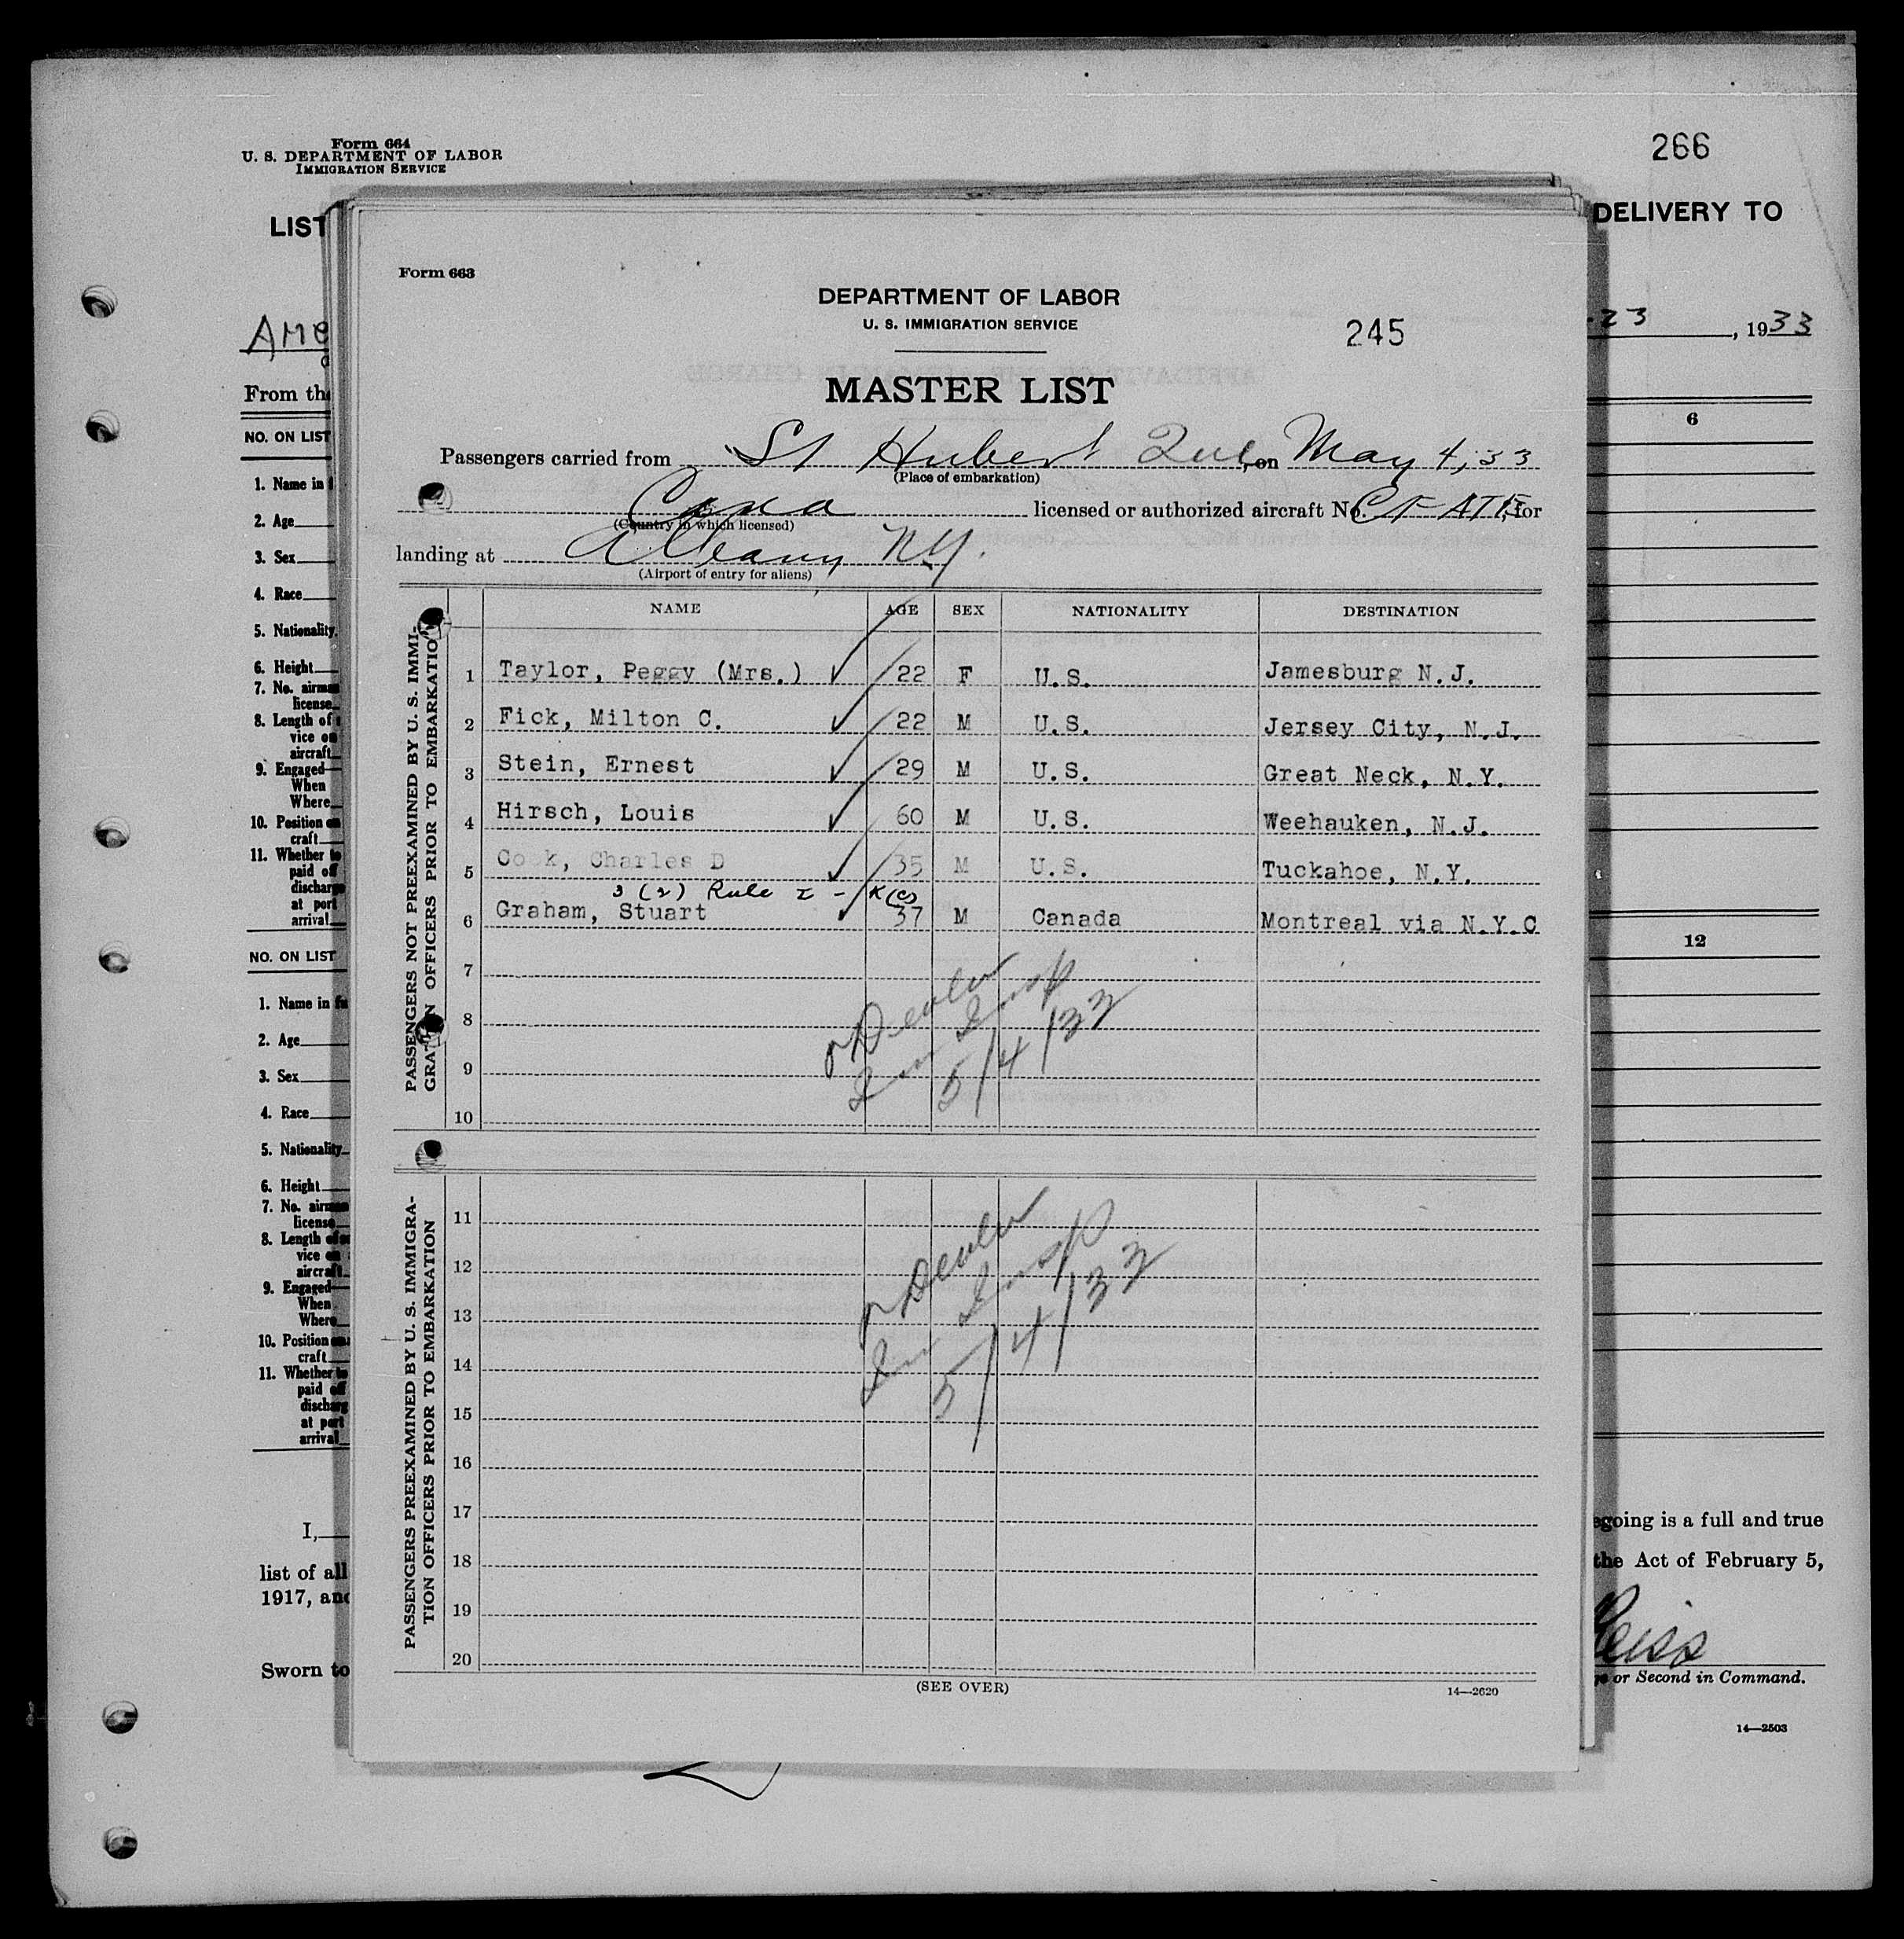 Form 664
U. S. DEPARTMENT OF LABOR
IMMIGRATION SERVICE
266
LIST
DELIVERY TO
AME
23, 1933
From the
Form 663
DEPARTMENT OF LABOR
U. S. IMMIGRATION SERVICE
245
MASTER LIST
Passengers carried from St Hubert Que, on May 4, 33
(Place of embarkation)
Cana licensed or authorized aircraft No. CF-ATE, for
(Country in which licensed)
landing at Albany N.Y.
(Airport of entry for aliens)
NAME AGE SEX NATIONALITY DESTINATION
PASSENGERS NOT PREEXAMINED BY U. S. IMMI-
GRATION OFFICERS PRIOR TO EMBARKATION
1 Taylor, Peggy (Mrs.) ✓ 22 F U.S. Jamesburg N.J.
2 Fick, Milton C. ✓ 22 M U.S. Jersey City, N.J.
3 Stein, Ernest ✓ 29 M U.S. Great Neck, N.Y.
4 Hirsch, Louis ✓ 60 M U.S. Weehauken, N.J.
5 Cook, Charles D ✓ 35 M U.S. Tuckahoe, N.Y.
3 (2) Rule I - K(c)
6 Graham, Stuart ✓ 37 M Canada Montreal via N.Y.C
7
8
9
10
Insp
5/4/33
PASSENGERS PREEXAMINED BY U. S. IMMIGRA-
TION OFFICERS PRIOR TO EMBARKATION
11
12
13
14
15
16
17
18
19
20
Insp
5/4/33
(SEE OVER)
14—2620
NO. ON LIST
1. Name in f
2. Age
3. Sex
4. Race
5. Nationality
6. Height
7. No. airman
license
8. Length of
vice on
aircraft
9. Engaged
When
Where
10. Position on
craft
11. Whether to
paid off
discharge
at port
arrival
6
NO. ON LIST
1. Name in fu
2. Age
3. Sex
4. Race
5. Nationality
6. Height
7. No. airman
license
8. Length of
vice on
aircraft
9. Engaged
When
Where
10. Position on
craft
11. Whether to
paid off
discharg
at port
arrival
12
I,
going is a full and true
list of all
the Act of February 5,
1917, and
Sworn to
or Second in Command.
14—2503